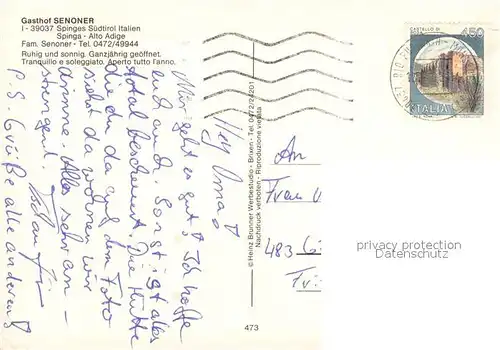 Gasthof SENONER
I - 39037 Spinges Südtirol Italien
Spinga - Alto Adige
Fam. Senoner - Tel. 0472/49944
Ruhig und sonnig. Ganzjährig geöffnet.
Tranquillo e soleggiato. Aperto tutto l'anno.
Hey Oma!
Mir geht es gut! Ich hoffe
euch auch. Sonst ist alles
total bescheuert. Die Hütte
die du da auf dem Foto
siehst da wohnen wir
drinne. Alles sehr an-
strengend.
P.S. Grüße alle anderen!
© Heinz Brunner Werbestudio - Brixen - Tel. 0472/24201
Nachdruck verboten - Riproduzione vietata
473
450
ITALIA
An
Frau
483
privacy protection
Datenschutz